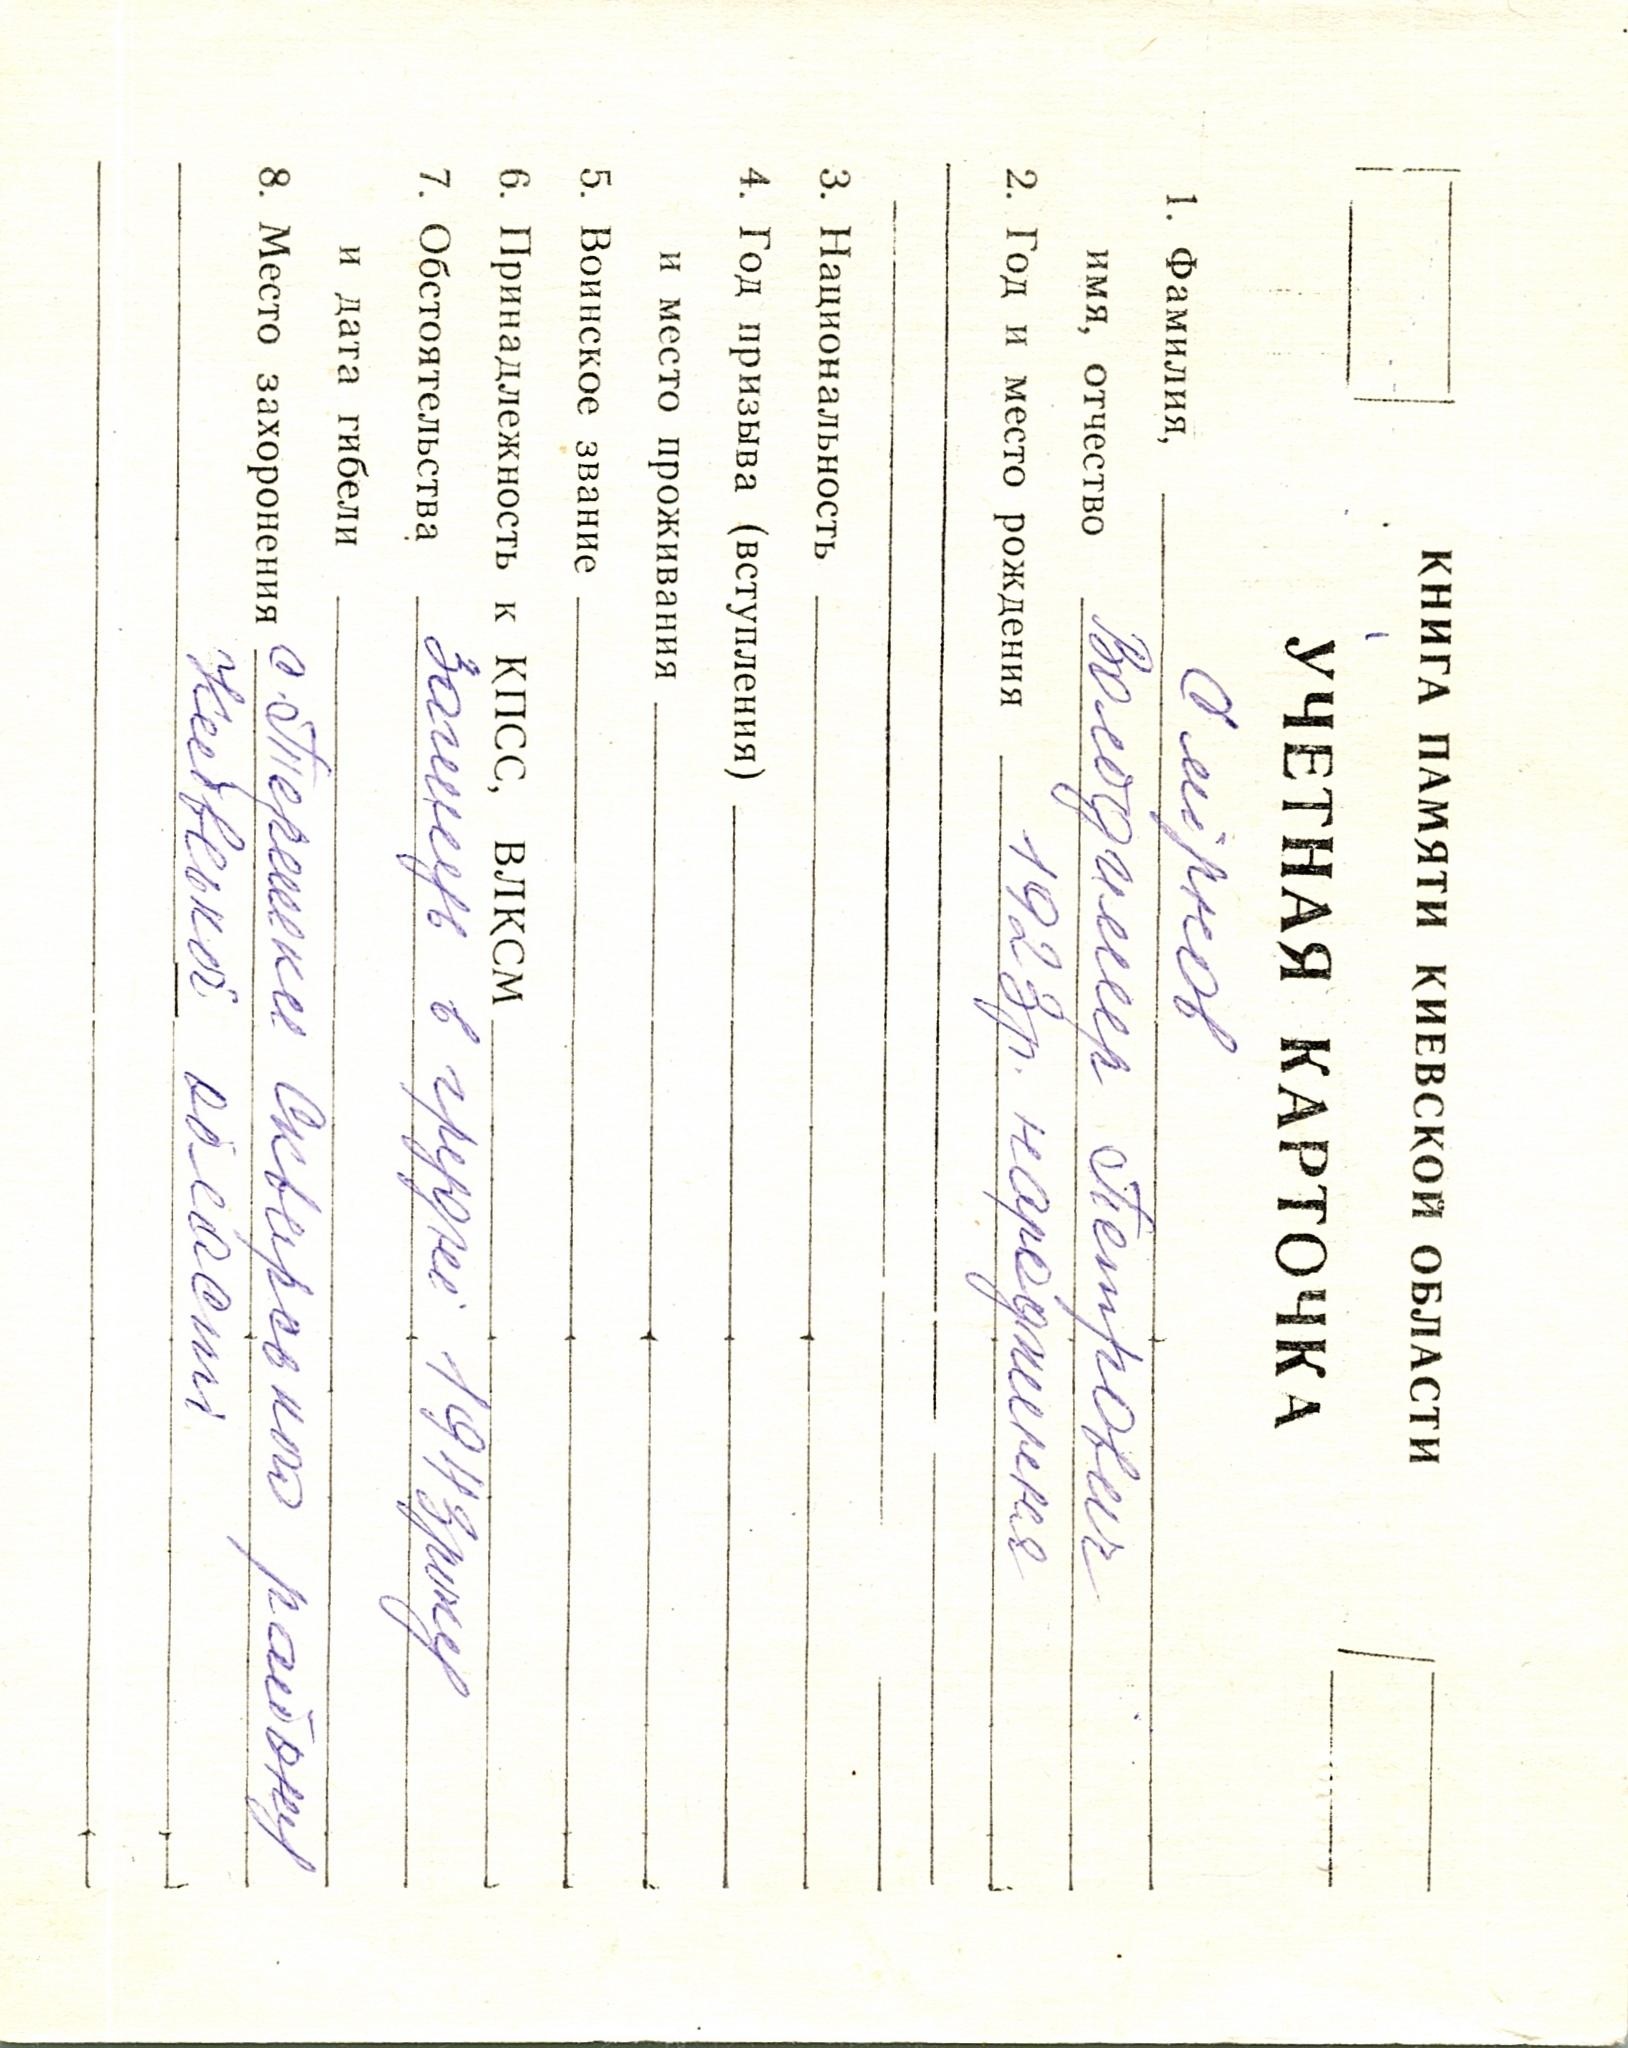 КНИГА ПАМЯТИ КИЕВСКОЙ ОБЛАСТИ
УЧЕТНАЯ КАРТОЧКА
1. Фамилия, Смірнов
имя, отчество Володимир Петрович
2. Год и место рождения 1923р. народження
3. Национальность
4. Год призыва (вступления)
и место проживания
5. Воинское звание
6. Принадлежность к КПСС, ВЛКСМ
7. Обстоятельства Загинув в грудні 1943 року
и дата гибели
8. Место захоронения с. Тереш Сквирського району
Київської області